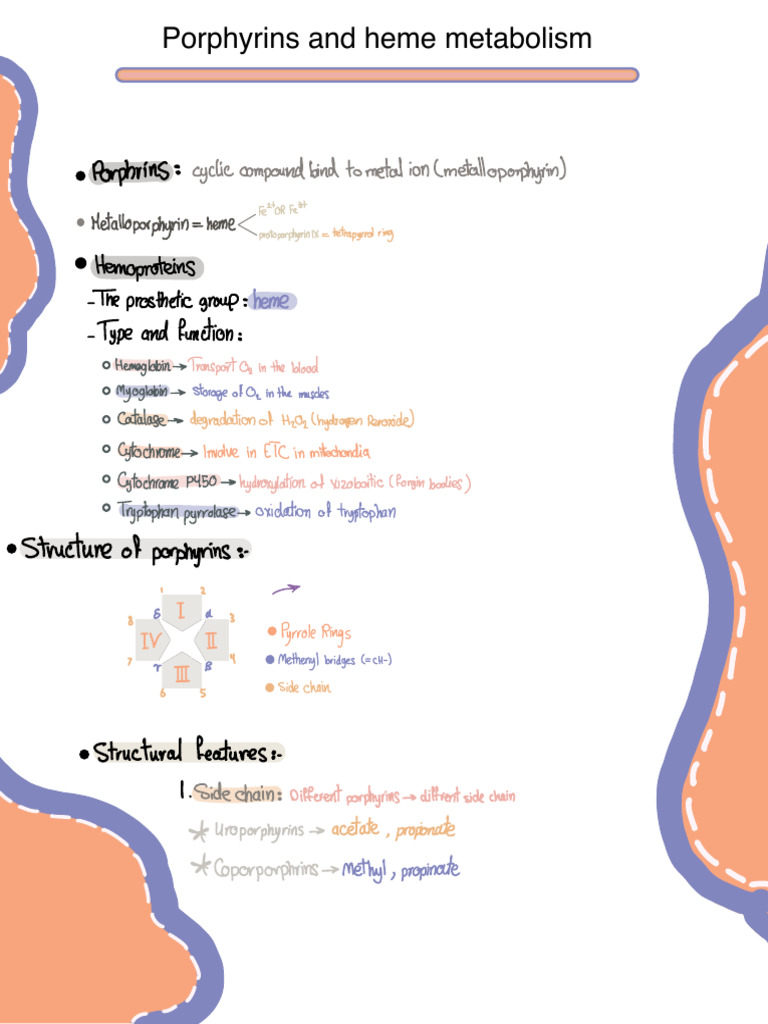 Porphyrins and heme metabolism
• Porphrins: cyclic compound bind to metal ion (metalloporphyrin)
• Metalloporphyrin = heme
Fe²⁺ OR Fe³⁺
protoporphyrin IX = tetrapyrrol ring
• Hemoproteins
- The prosthetic group: heme
- Type and function:
○ Hemoglobin → Transport O₂ in the blood
○ Myoglobin → storage of O₂ in the muscles
○ Catalase → degradation of H₂O₂ (hydrogen Peroxide)
○ Cytochrome → Involve in ETC in mitochondia
○ Cytochrome P450 → hydroxylation of xizoboitic (forgin bodies)
○ Tryptophan pyrrolase → oxidation of tryptophan
• Structure of porphyrins:-
1 2
δ I α
8 3
IV II
7 4
γ III β
6 5
• Pyrrole Rings
• Methenyl bridges (=CH-)
• Side chain
• Structural features:-
1. Side chain: Different porphyrins → diffrent side chain
* Uroporphyrins → acetate, propionate
* Coporporphrins → Methyl, propinate